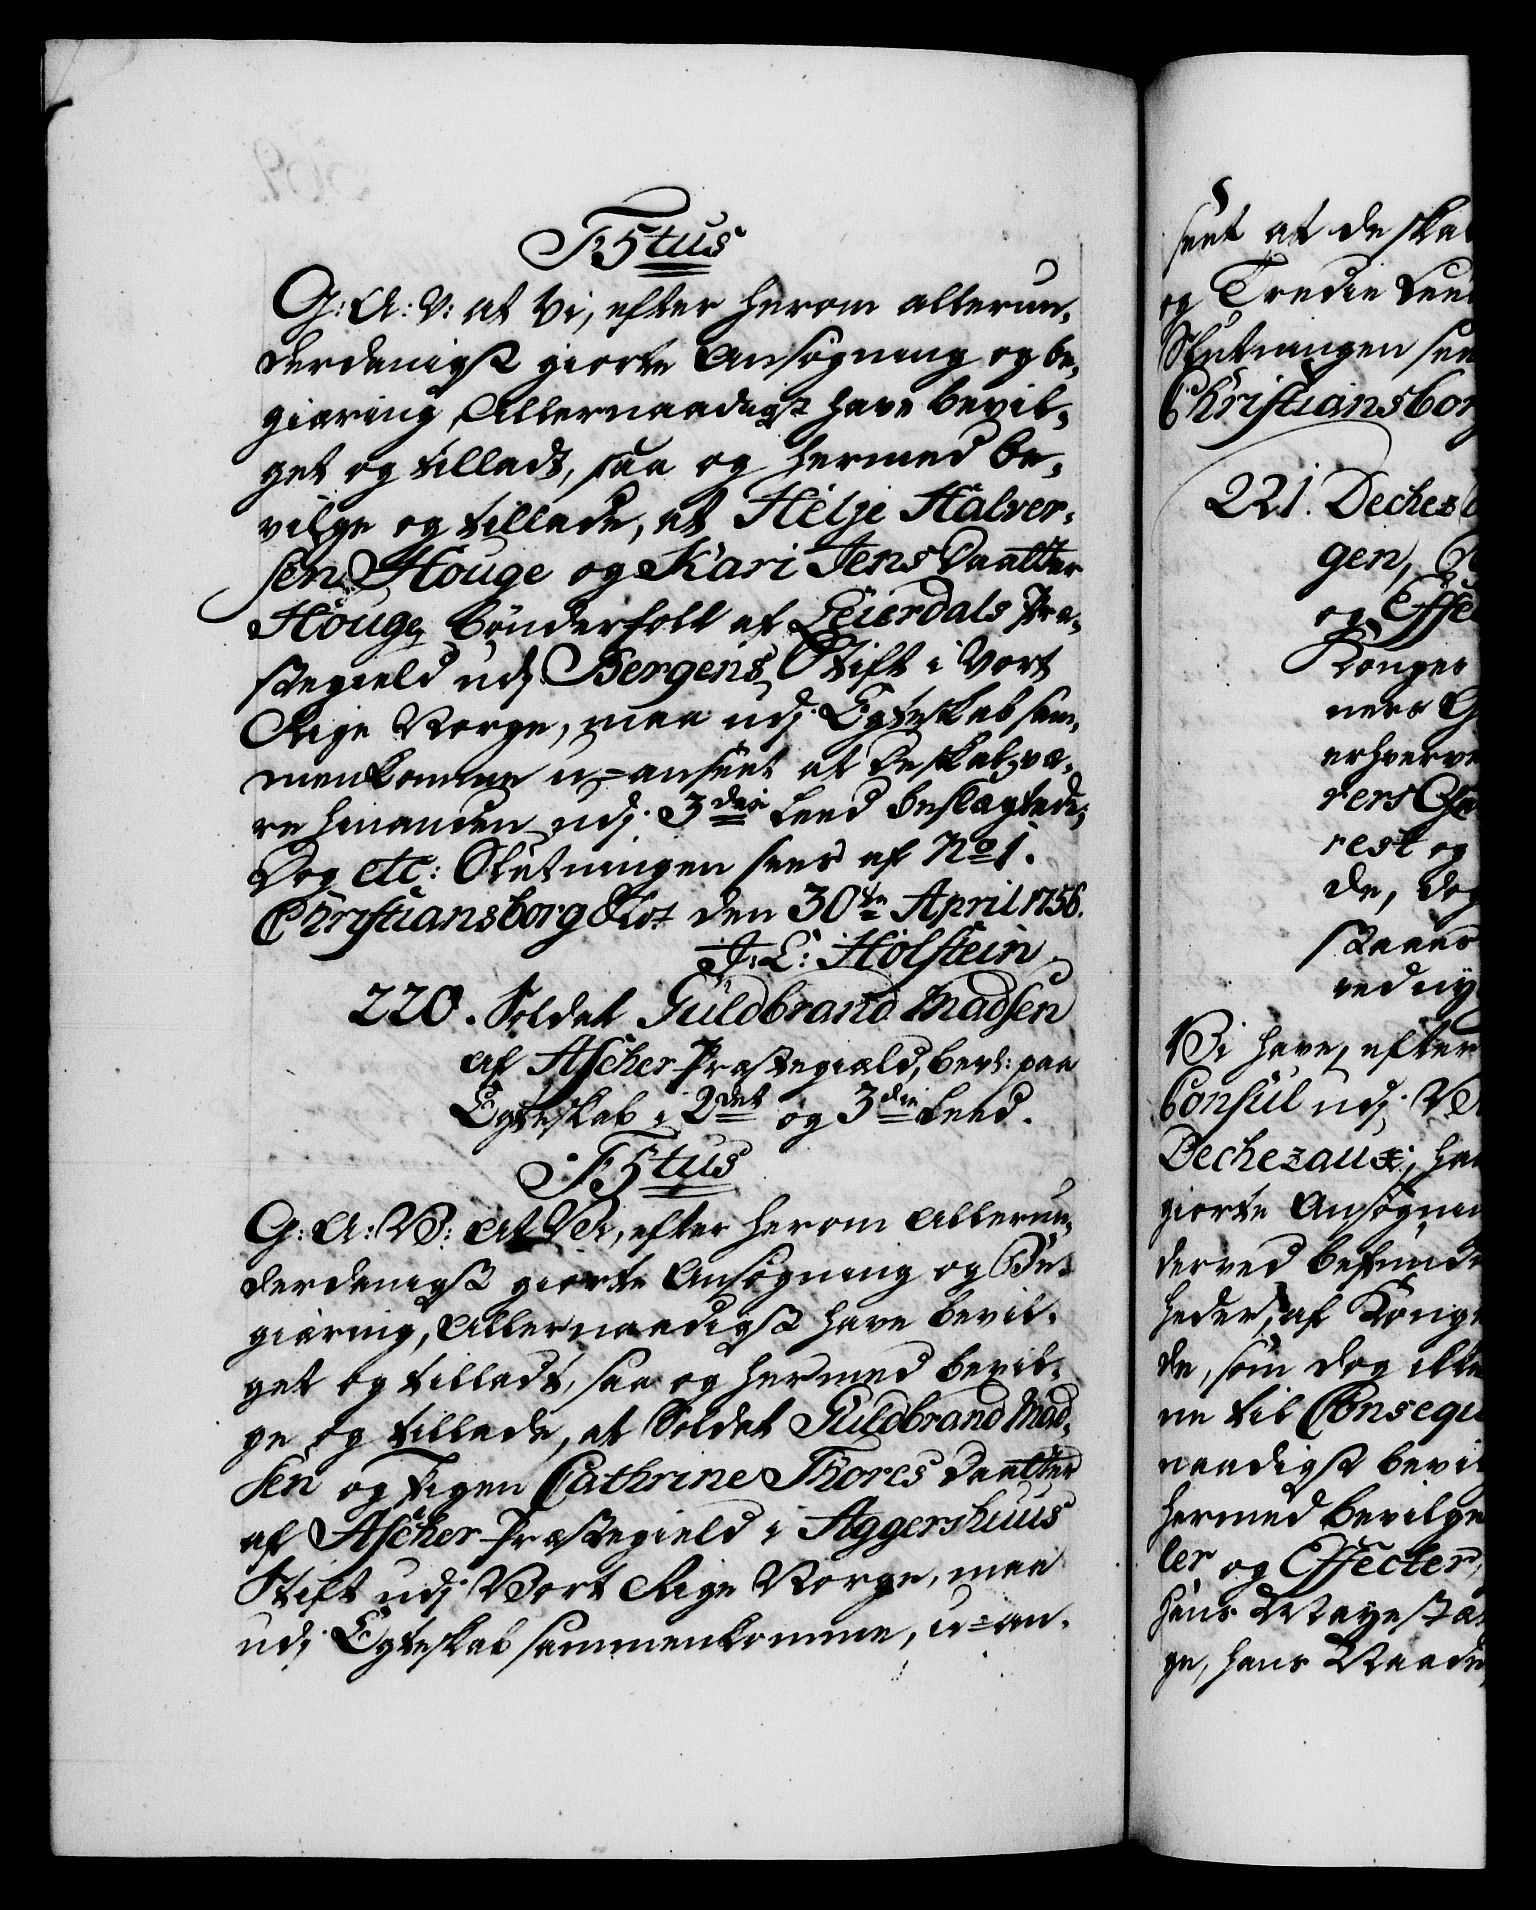 F5tus
G: A: V: at Vi, efter herom allerun-
derdanigst giorte Ansøgning og be-
giæring, Allernaadigst have bevil-
get og tilladt, saa og hermed be-
vilge og tillade, at Helje Halver-
sen Houge og Kari Jens Daatter
Houge, bønderfolk af Leierdals Præ-
stegield udj Bergens Stift i Vort
Rige Norge, maa udj Egteskab sam-
menkomme u-anseet at de skal væ-
re hinanden udj 3die Leed beslægtede;
Dog etc: Slutningen sees af No 1.
Christiansborg Slot den 30te April 1756.
J: L: Holstein
220. Soldat Guldbrand Madsen
af Ascher Præstegiæld, bevl: paa
Egteskab i 2det og 3die Leed.
F5tus
G: A: V: at Vi, efter herom Allerun-
derdanigst giorte Ansøgning og Be-
giæring, Allernaadigst have bevil-
get og tilladt, saa og hermed bevil-
ge og tillade, at Soldat Guldbrand Mad-
sen og Pigen Cathrine Thores Daatter
af Ascher Præstegield i Aggershuus
Stift udj Vort Rige Norge, maa
udj Egteskab sammenkomme, u-an-
seet at de skal
og Tredie Leed
Slutningen sees
Christiansborg
221. Dechez
gen,
og Effe
Konges
ners
erhverve
rers
rest og
de, dog
staaer
ved ny
Vi have, efter
Consul udj
Dechezaux, ha
giorte Ansøgnin
derved befinde
heder, af Konge
de, som dog ikke
ne til Consequ
naadigst bevil
hermed bevilge
ler og Effecter,
hans Mayestæt
ge, hans Naade